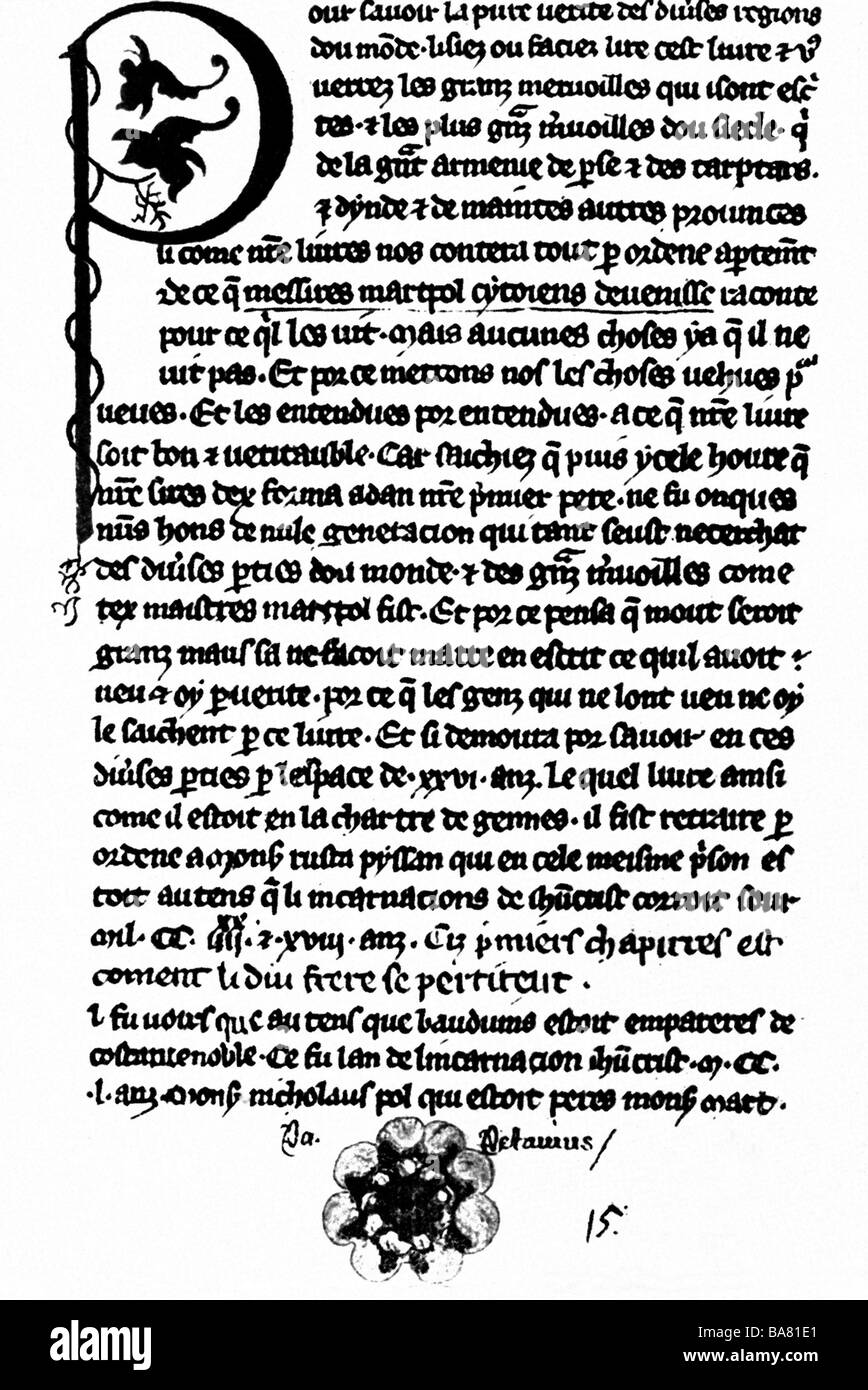 Pour savoir la pure verite des diuses regions
dou mōde. lisiez ou faciez lire cest liure ⁊ v9
uerrez les granz meruoilles qui i sont esc̓
tes. ⁊ les plus gnz muoilles dou siecle. q̓
de la gnt armenie de pse ⁊ des tarptars.
⁊ dynde ⁊ de maintes autres prouinces
si come nr̄e liures nos contera tout p ordene aptemt
de ce q̄ messires marcpol cytoiens de uenisse raconte
pour ce q̓l les uit. Mais aucunes choses y a q̄ il ne
uit pas. Et por ce metrons nos les choses uehues p
ueues. Et les entendues por entendues. a ce q̄ nr̄e liure
soit bon ⁊ ueritauble. Car saichiez q̄ puis ycele houre q̄
nr̄e sires dex forma adan nr̄e p̓mier pere. ne fu onques
nu̅s hons de nule generacion qui tant seust ne cerchat
des diuses pties dou monde. ⁊ des gnz muoilles come
tex maistres marcpol fist. Et por ce pensa q̄ mout seroit
granz maus sa ne facoit mattre en escrit ce quil auoit
ueu ⁊ oy p uerite. por ce q̄ les genz qui ne lont ueu ne oy
le saichent p ce liure. Et si demoura por sauoir en ces
diuses pties p lespace de. xxvi. anz. Le quel liure ainsi
come il estoit en la chartre de gennes. il fist retraire p
ordene a Monss rusta pyssan qui en cele meisme p̓son es
toit au tens q̄ li incarnacions de ihucrist corroit sour
mil. CC. iiii xx. ⁊ xviii. anz. Ciz p̓miers chapitres est
coment li dui frere se partirent.
l fu uoirs que au tens que bauduins estoit empareres de
costantenoble. Ce fu lan de lincarnacion ihucrist. M. CC.
.l. anz. Monss nicholaus pol qui estoit peres monss marc.
Pa. Petauius /
15.
alamy
Image ID: BA81E1
www.alamy.com